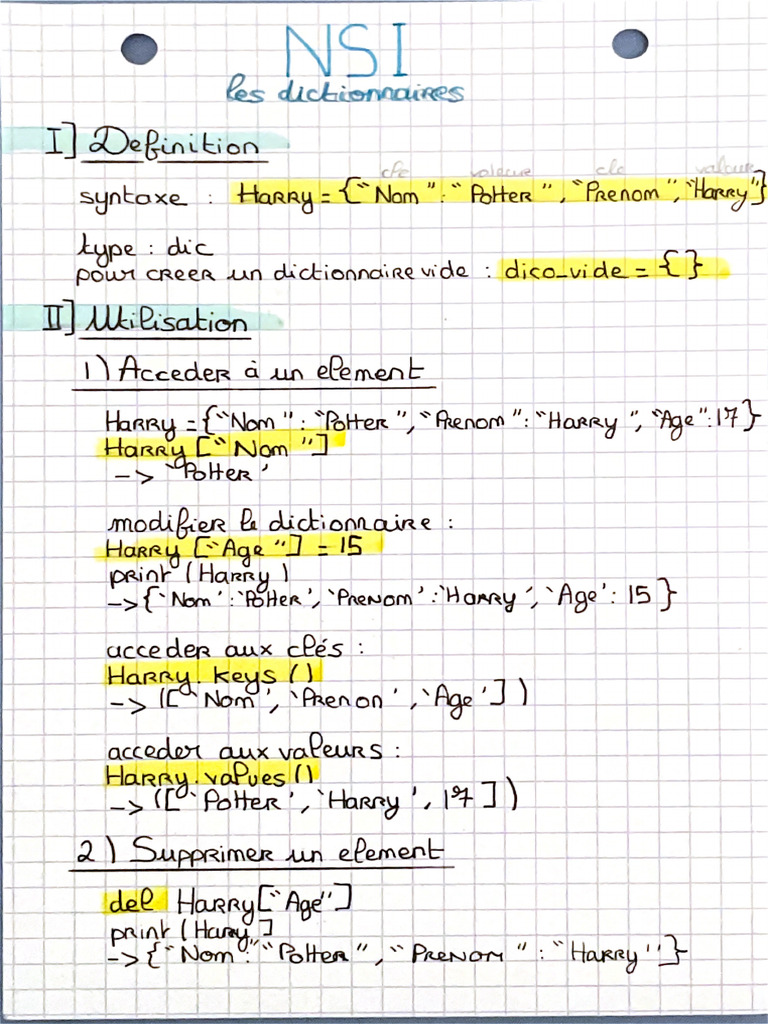 NSI
les dictionnaires
I] Definition
cle valeur cle valeur
syntaxe : Harry = {"Nom" : "Potter", "Prenom", "Harry"}
type : dic
pour creer un dictionnaire vide : dico_vide = {}
II] Utilisation
1) Acceder à un element
Harry = {"Nom" : "Potter", "Prenom" : "Harry", "Age" : 17}
Harry ["Nom"]
-> 'Potter'
modifier le dictionnaire :
Harry ["Age"] = 15
print (Harry)
-> {'Nom' : 'Potter', 'Prenom' : 'Harry', 'Age' : 15}
acceder aux clés :
Harry.keys ()
-> (['Nom', 'Prenon', 'Age'])
acceder aux valeurs :
Harry.values ()
-> (['Potter', 'Harry', 17])
2) Supprimer un element
del Harry["Age"]
print (Harry]
-> {"Nom" : "Potter", "Prenom" : "Harry"}